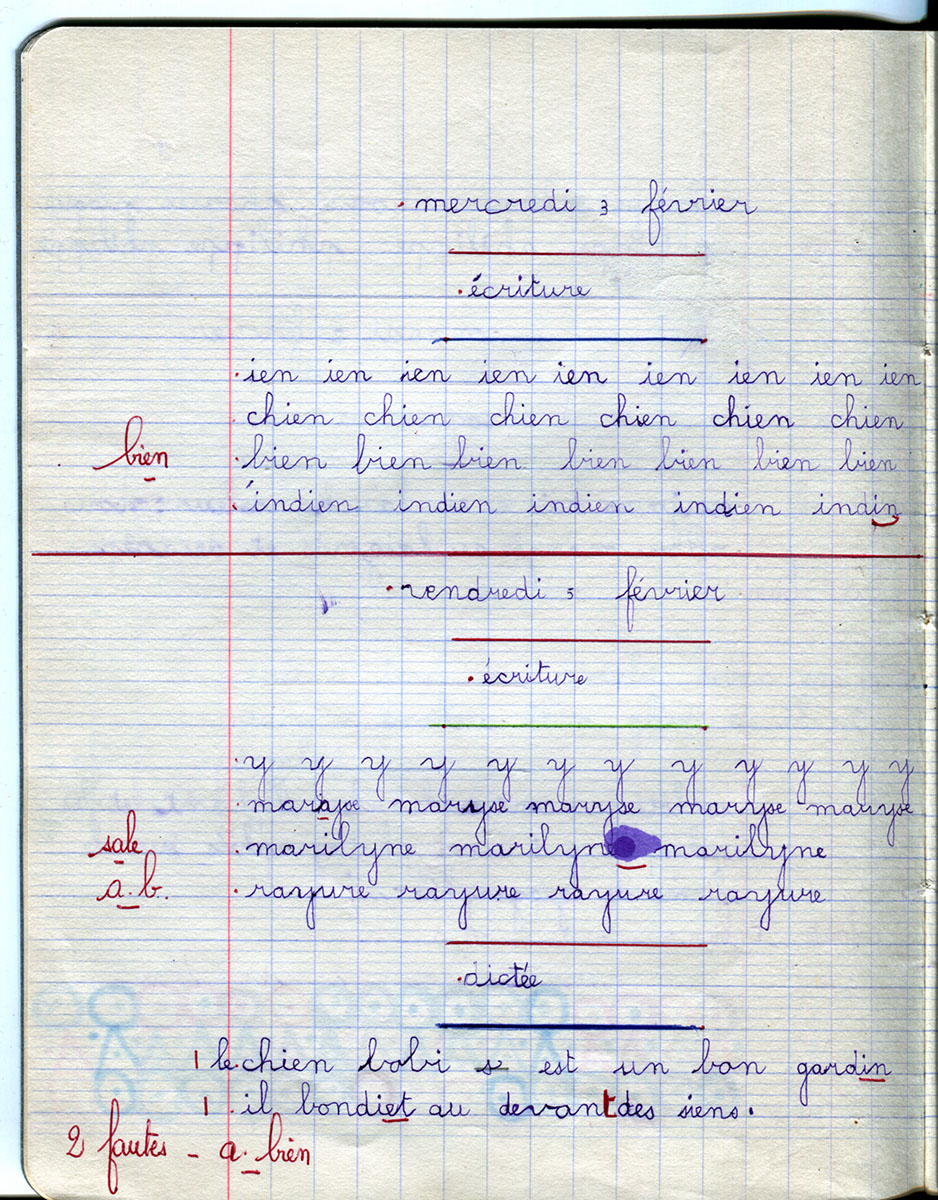 mercredi 3 février
écriture
ien ien ien ien ien ien ien ien ien
chien chien chien chien chien chien
bien bien bien bien bien bien bien bien
indien indien indien indien indin
vendredi 5 février
écriture
y y y y y y y y y y y y
marayse maryse maryse maryse maryse
sale marilyne marilyne marilyne
a.b. rayure rayure rayure rayure
dictée
1 le chien bobi est un bon gardin
1 il bondiet au devant des siens.
2 fautes - a. bien